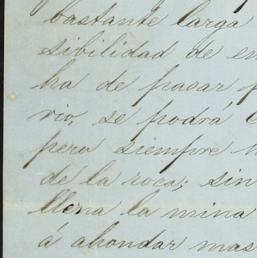 bastante larga
sibilidad de en
ha de pasar p
vio, se podrá
pero siempre
de la roca; sin
llena la mina
á ahondar mas